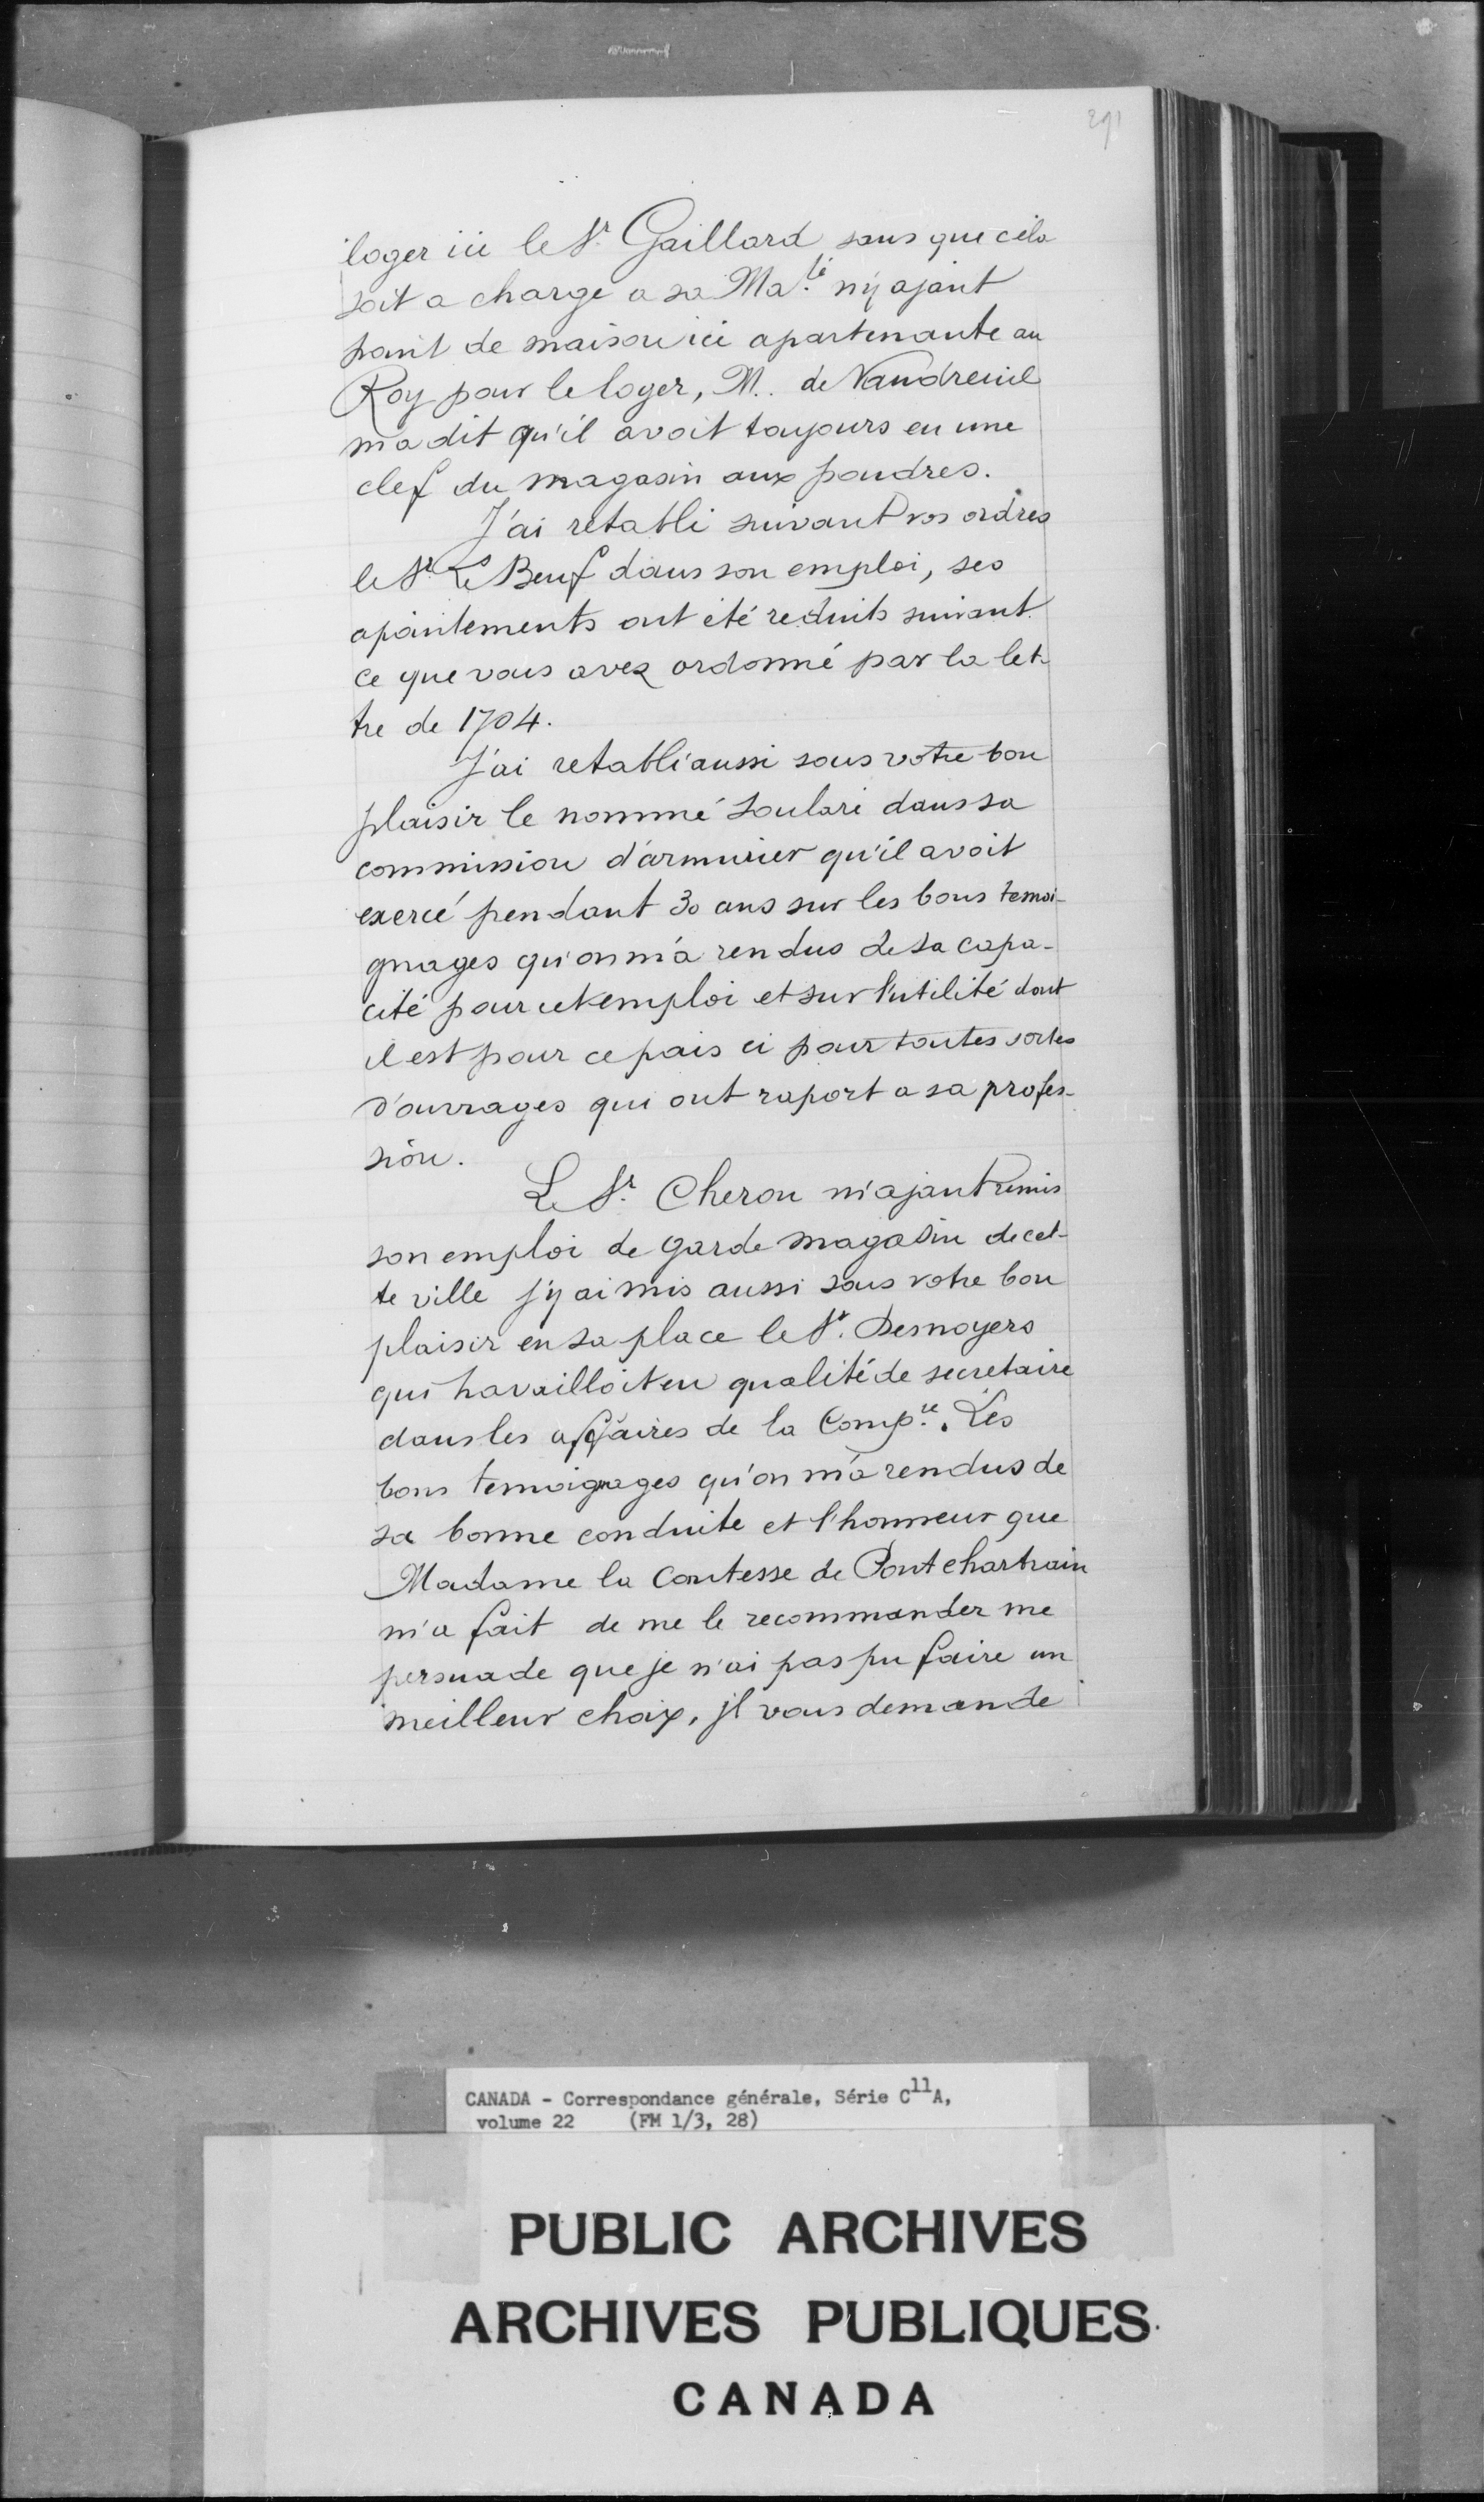 291
loger ici le Sr. Gaillard sans que cela
soit a charge a sa Ma.té n'y ajant
point de maison ici apartenante au
Roy pour le loger, M. de Vaudreuil
m'a dit qu'il avoit toujours eu une
clef du magasin aux poudres.
J'ai retabli suivant vos ordres
le Sr. Le Beuf dans son emploi, ses
apointements ont été reduits suivant
ce que vous avez ordonné par la let-
tre de 1704.
J'ai retabli aussi sous votre bon
plaisir le nommé Soulard dans sa
commission d'armurier qu'il avoit
exercé pendant 30 ans sur les bons temoi-
gnages qu'on m'a rendus de sa capa-
cité pour cet emploi et sur l'utilité dont
il est pour ce pais ci pour toutes sortes
d'ouvrages qui ont raport a sa profes-
sion.
Le Sr. Cheron m'ajant remis
son emploi de garde magasin de cet-
te ville j'y ai mis aussi sous votre bon
plaisir en sa place le Sr. Desnoyers
qui travailloit en qualité de secretaire
dans les affaires de la Comp.ie. Les
bons temoignages qu'on m'a rendus de
sa bonne conduite et l'honneur que
Madame la Contesse de Pontchartrain
m'a fait de me le recommander me
persuade que je n'ai pas pu faire un
meilleur choix, jl vous demande
CANADA - Correspondance générale, Série C11A,
volume 22 (FM 1/3, 28)
PUBLIC ARCHIVES
ARCHIVES PUBLIQUES
CANADA